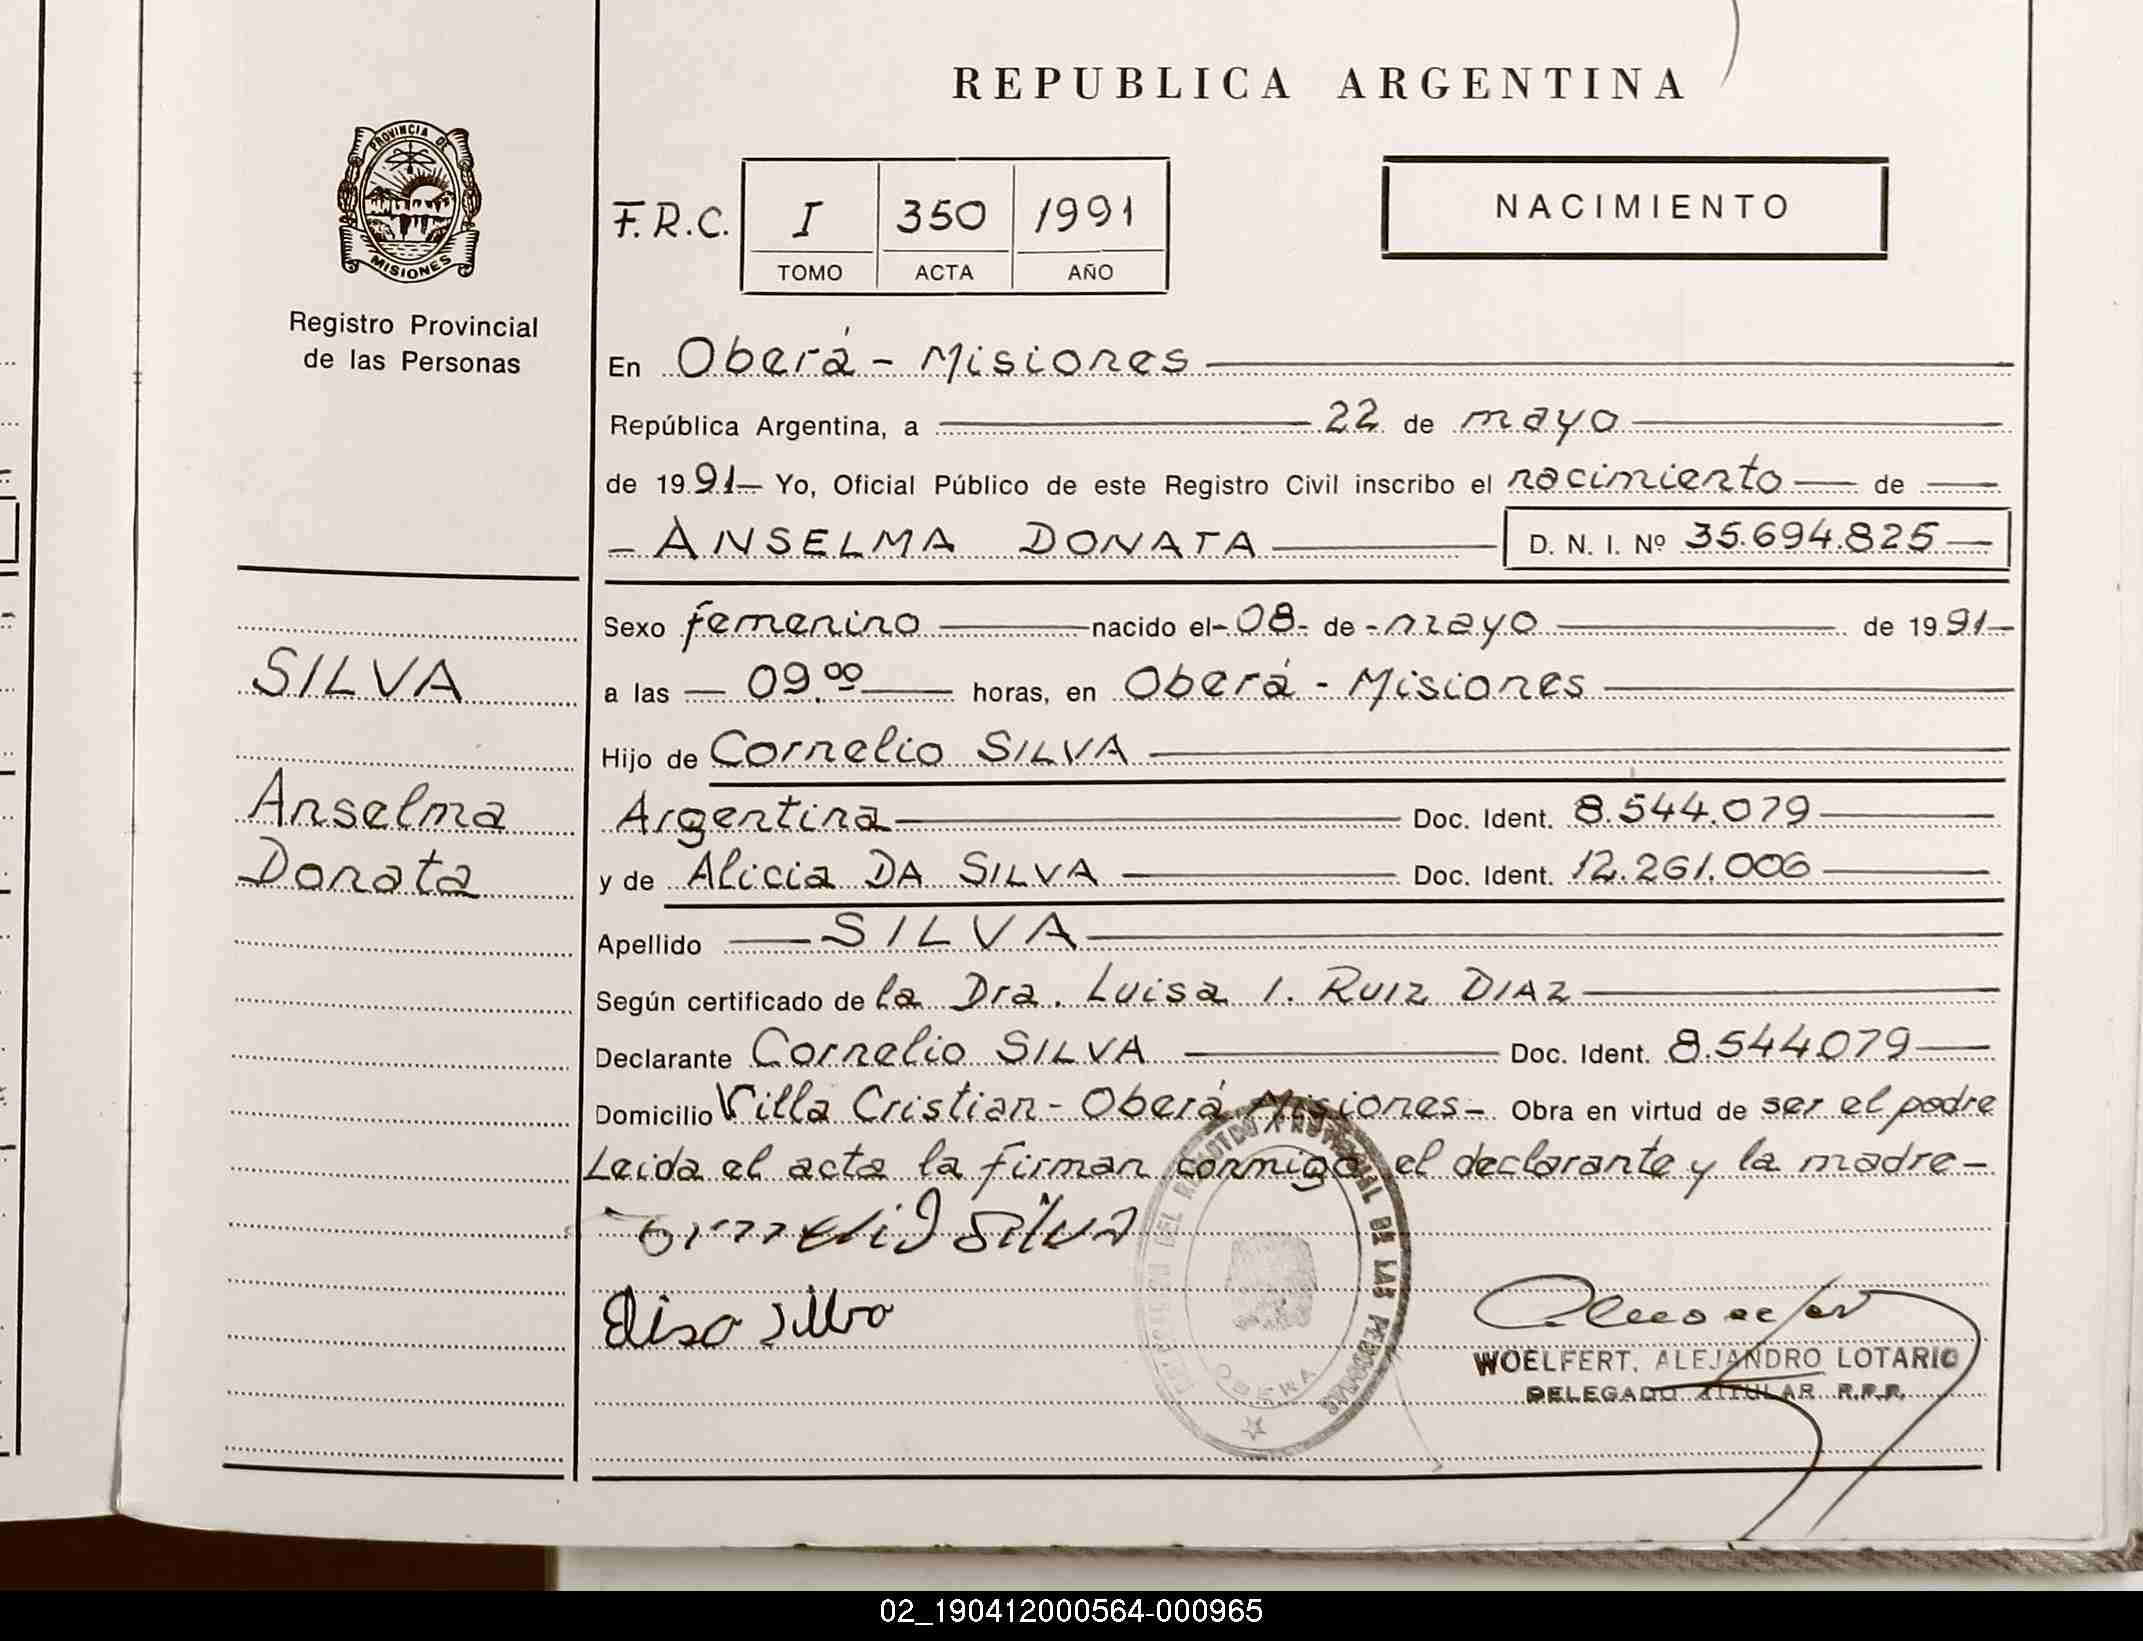 REPUBLICA ARGENTINA
PROVINCIA DE MISIONES
Registro Provincial
de las Personas
F.R.C. I 350 1991
TOMO ACTA AÑO
NACIMIENTO
En Oberá - Misiones
República Argentina, a 22 de mayo
de 1991 Yo, Oficial Público de este Registro Civil inscribo el nacimiento de
ANSELMA DONATA D. N. I. Nº 35.694.825
Sexo femenino nacido el 08 de mayo de 1991
a las 09.00 horas, en Oberá - Misiones
Hijo de Cornelio SILVA
Argentina Doc. Ident. 8.544.079
y de Alicia DA SILVA Doc. Ident. 12.261.006
Apellido SILVA
Según certificado de la Dra. Luisa I. RUIZ DIAZ
Declarante Cornelio SILVA Doc. Ident. 8.544.079
Domicilio Villa Cristian - Oberá Misiones - Obra en virtud de ser el padre
Leida el acta la firman conmigo el declarante y la madre -
SILVA
Anselma
Donata
Cornelio Silva
Silva
DEL REGISTRO PROVINCIAL DE LAS PERSONAS
OBERA
WOELFERT, ALEJANDRO LOTARIO
DELEGADO TITULAR R.P.P.
02_190412000564-000965